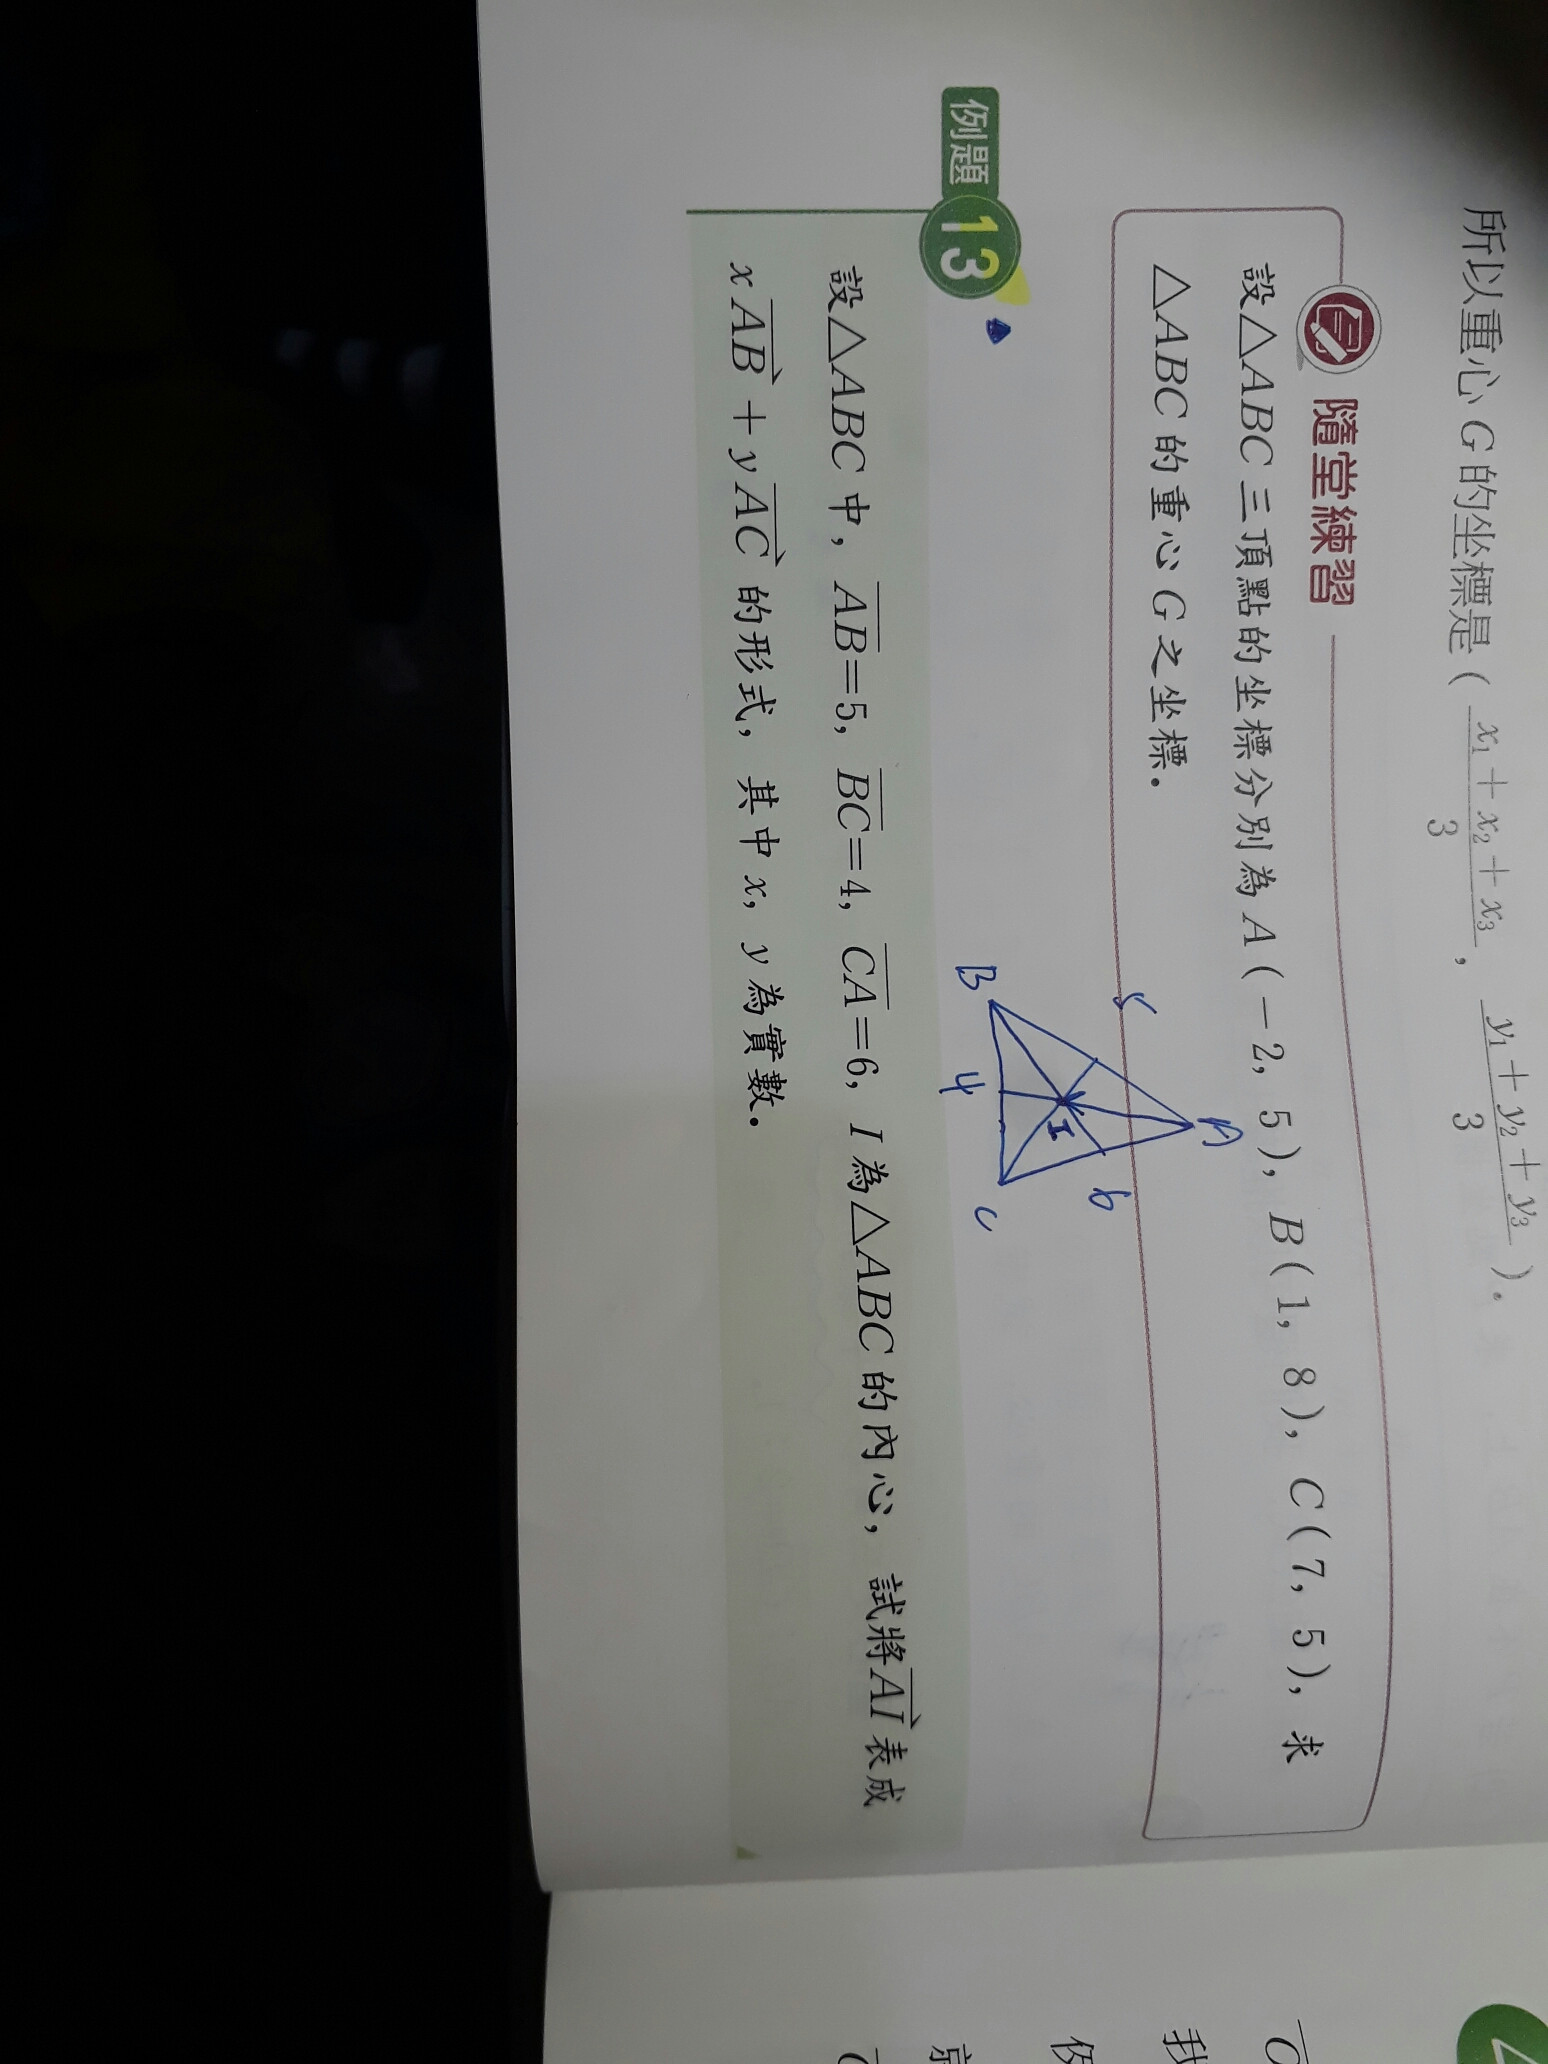 所以重心 G 的坐標是 ( \frac{x₁+x₂+x₃}{3}, \frac{y₁+y₂+y₃}{3} )。
隨堂練習
設△ABC三頂點的坐標分別為A(-2, 5), B(1, 8), C(7, 5), 求
△ABC的重心G之坐標。
A
5
6
I
B
4
C
例題 13
設△ABC中, \overline{AB}=5, \overline{BC}=4, \overline{CA}=6, I為△ABC的內心, 試將\overrightarrow{AI}表成
x\overrightarrow{AB}+y\overrightarrow{AC}的形式, 其中x, y為實數。